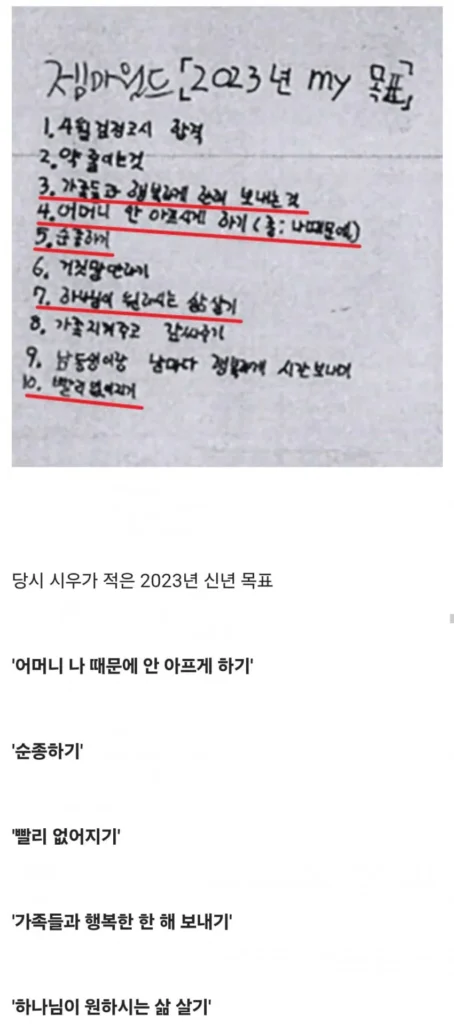 「2023년 my 목표」
1. 4월 검정고시 합격
2. 약 줄이는것
3. 가족들과 행복하게 보내는 것
4. 어머니 안 아프시게 하기 (나때문에)
5. 순종하기
6. 거짓말안하기
7. 하나님이 원하시는 삶 살기
8. 가족 지켜주고 감싸주기
9. 남동생이랑 날마다 행복하게 시간보내며
10. 빨리 없어지기
당시 시우가 적은 2023년 신년 목표
'어머니 나 때문에 안 아프게 하기'
'순종하기'
'빨리 없어지기'
'가족들과 행복한 한 해 보내기'
'하나님이 원하시는 삶 살기'